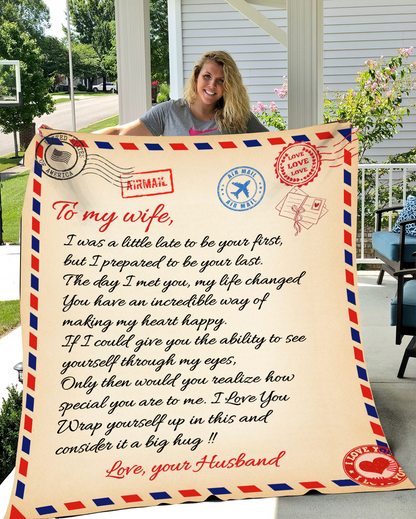 AIRMAIL
AIR MAIL
AIR MAIL
LOVE
LOVE
LOVE
AMERICA
To my wife,
I was a little late to be your first,
but I prepared to be your last.
The day I met you, my life changed
You have an incredible way of
making my heart happy.
If I could give you the ability to see
yourself through my eyes,
Only then would you realize how
special you are to me. I Love You
Wrap yourself up in this and
consider it a big hug !!
Love, your Husband
I LOVE YOU